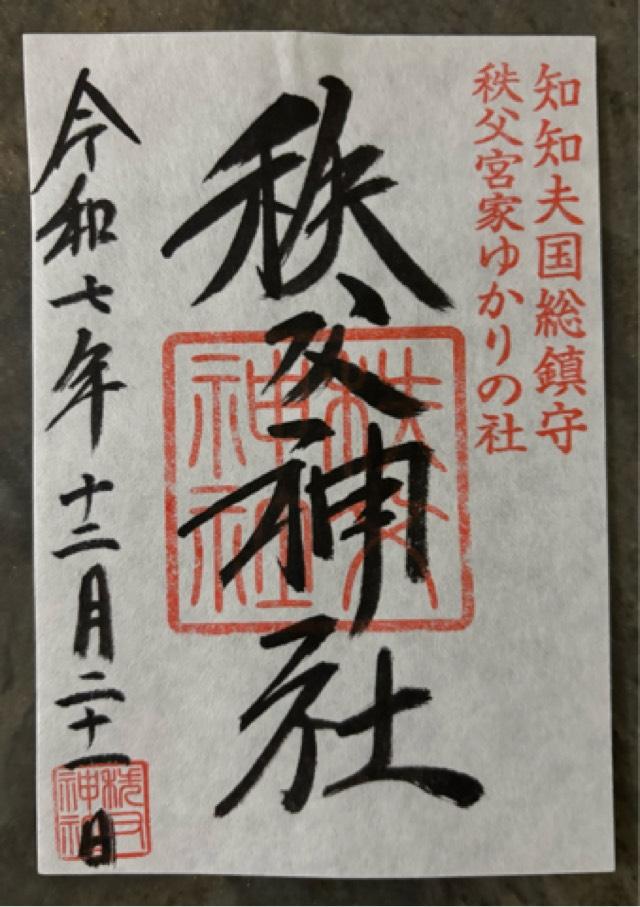 知知夫国総鎮守
秩父宮家ゆかりの社
秩父神社
秩父神社
令和七年十二月二十一日
秩父神社